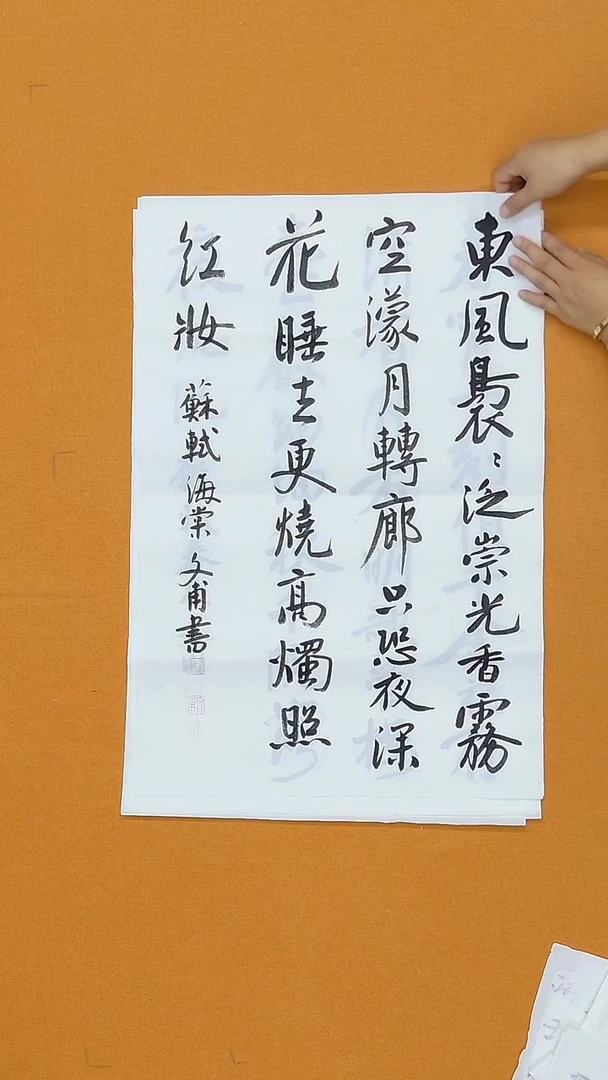 東風裊〻泛崇光香霧
空濛月轉廊只恐夜深
花睡去更燒高燭照
紅妝
蘇軾海棠文甫書